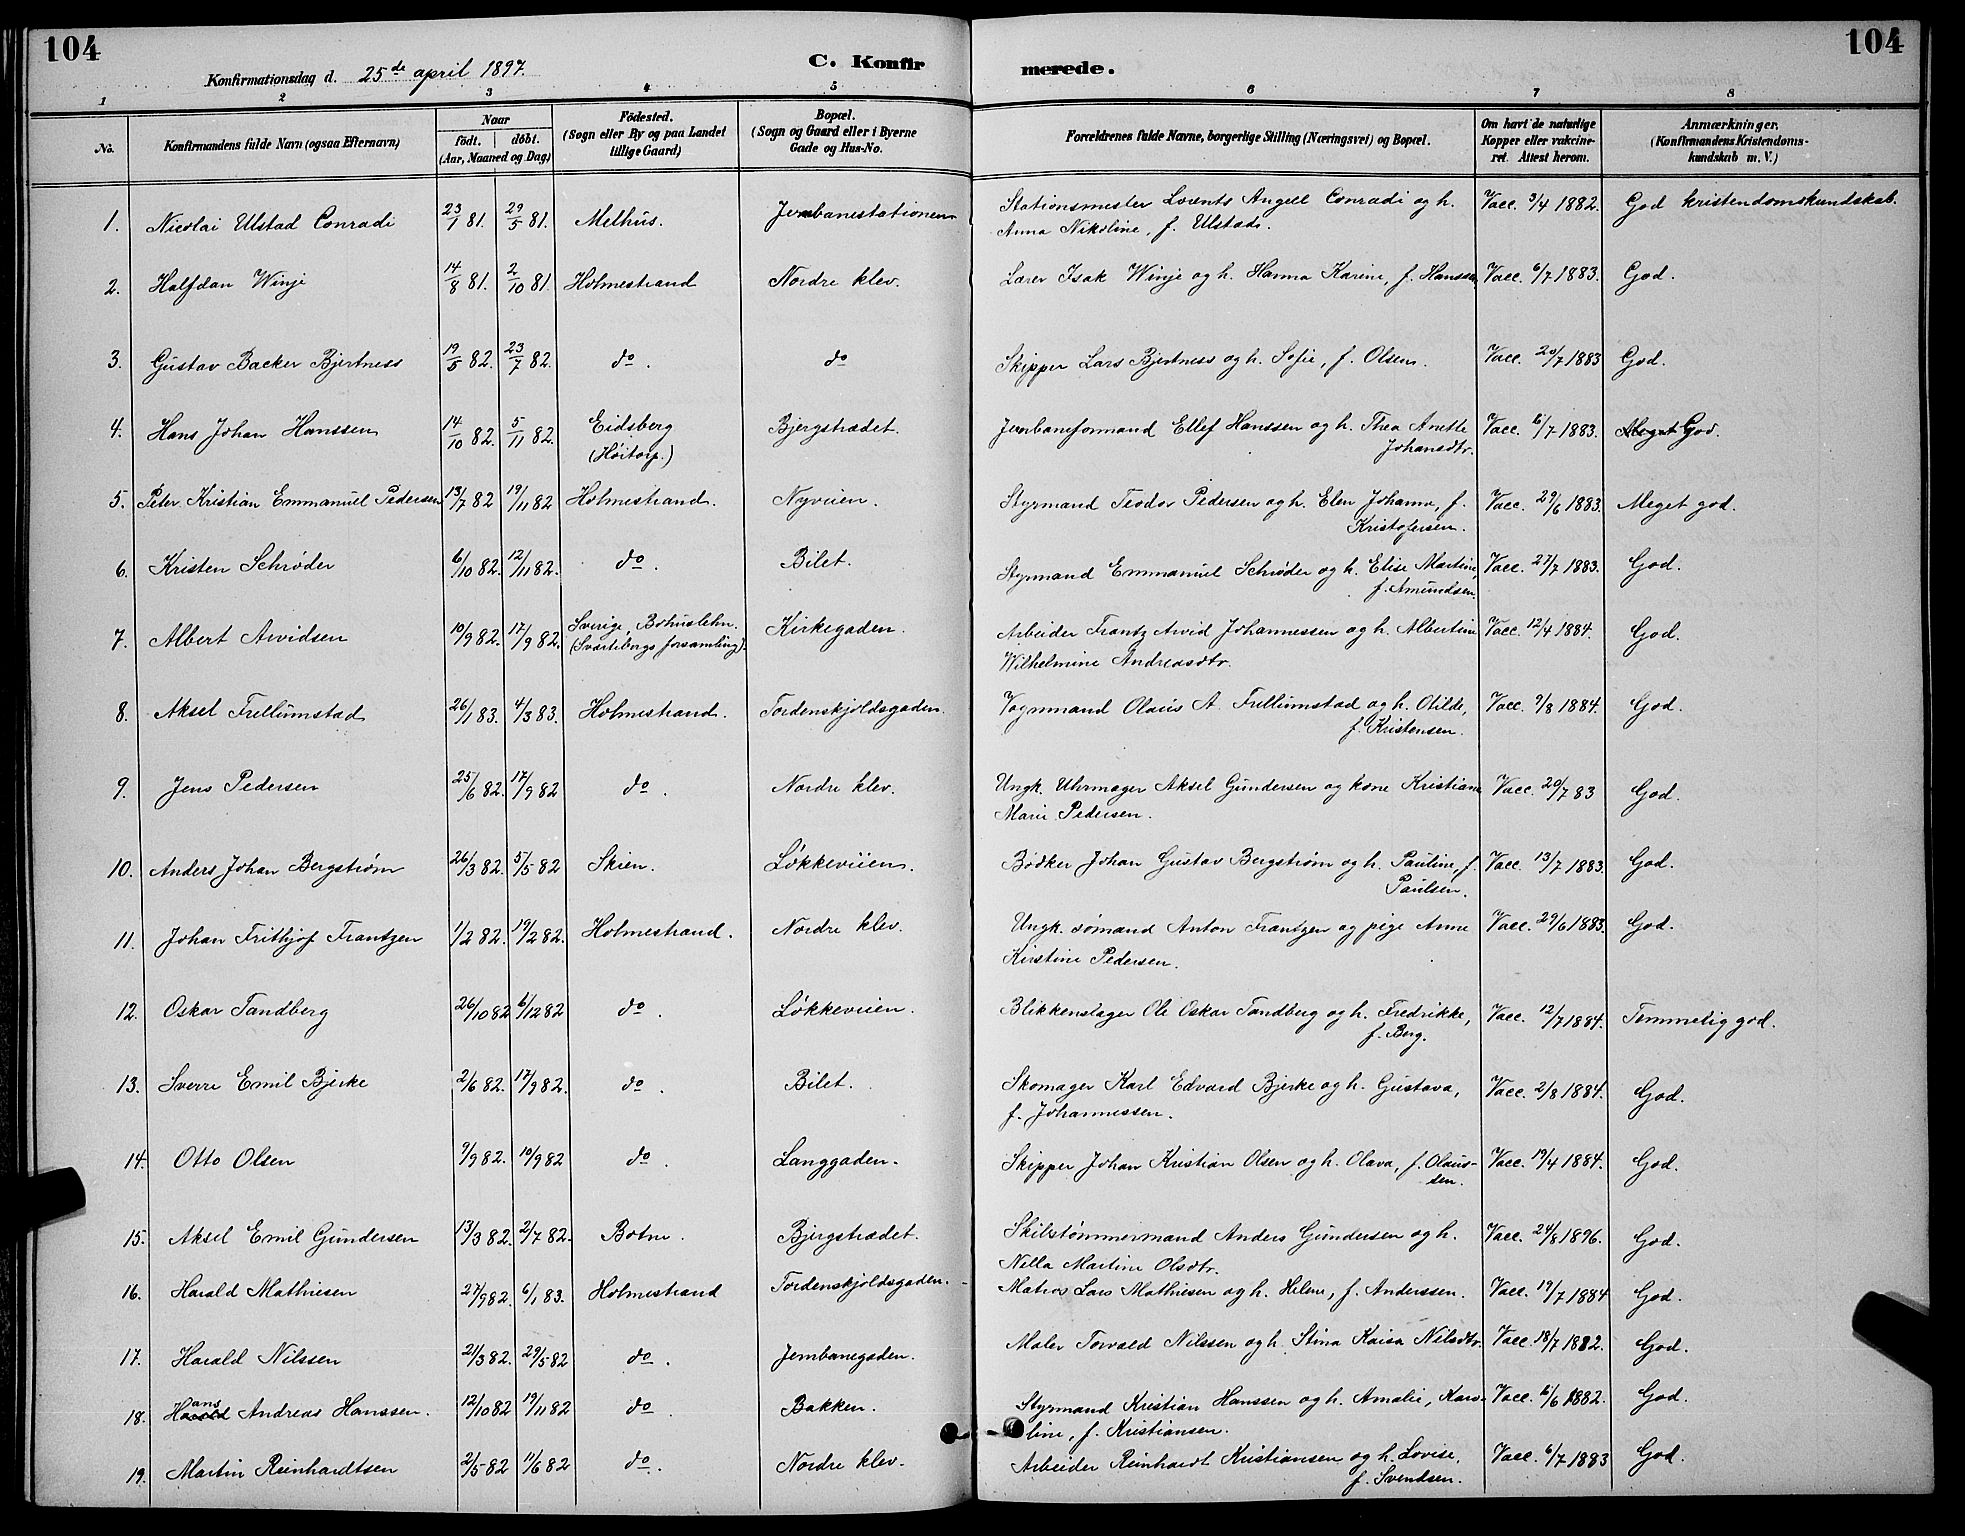 104
104
Konfirmationsdag d. 25de april 1897.
C. Konfir
merede.
1 2 3 4 5 6 7 8
No.
Konfirmandens fulde Navn (ogsaa Efternavn)
Naar
födt. döbt.
(Aar, Maaned og Dag)
Födested.
(Sogn eller By og paa Landet
tillige Gaard)
Bopæl.
(Sogn og Gaard eller i Byerne
Gade og Hus-No.
Forældrenes fulde Navne, borgerlige Stilling (Næringsvei) og Bopæl.
Om havt de naturlige
Kopper eller vakcine-
ret. Attest herom.
Anmærkninger.
(Konfirmandens Kristendoms-
kundskab m. V.)
1. Nicolai Ulstad Conradi 23/1 81. 29/5 81. Melhus. Jernbanestationen Stationsmester Lorents Angell Conradi og h. Vacc. 3/4 1882. God kristendomskundskab.
Anna Nikoline, f. Ulstad.
2. Halfdan Winje 14/8 81. 2/10 81. Holmestrand Nordre klev. Lærer Isak Winje og h. Hanna Karine, f. Hanssen Vacc. 6/7 1883. God.
3. Gustav Backer Bjertness 19/5 82. 23/7 82. do. do Skipper Lars Bjertness og h. Sofie, f. Olsen. Vacc. 20/7 1883 God.
4. Hans Johan Hanssen 14/10 82. 5/11 82. Eidsberg Bjergstrædet. Jernbaneformand Ellef Hanssen og h. Thea Anette Vacc. 6/7 1883. Meget God.
(Höitorp.) Johansdtr.
5. Peter Kristian Emmanuel Pedersen 13/7 82 19/11 82 Holmestrand. Nyveien. Styrmand Teodor Pedersen og h. Elen Johanne, f. Vacc. 29/6 1883. Meget god.
Kristofersen.
6. Kristen Schrøder 6/10 82. 12/11 82. do. Bilet. Styrmand Emmanuel Schrøder og h. Elise Martine, Vacc. 27/7 1883. God.
f. Amundsen.
7. Albert Arvidsen 10/9 82. 17/9 82. Sverige Bohuslehn. Kirkegaden. Arbeider Frantz Arvid Johannessen og h. Albertine Vacc. 12/4 1884. God.
(Svarteborgs forsamling). Wilhelmine Andreasdtr.
8. Aksel Frellumstad 26/1 83. 4/3 83. Holmestrand. Tordenskjoldsgaden. Vognmand Olaus A. Frellumstad og h. Otilde, Vacc. 9/8 1884. God.
f. Kristensen.
9. Jens Pedersen 25/6 82. 17/9 82 do. Nordre klev. Ungk. Uhrmager Aksel Gundersen og kone Kristiane Vacc. 20/7 83 God.
Marie Pedersen.
10. Anders Johan Bergstrøm 26/3 82. 5/5 82 Skien. Løkkeveien. Bødker Johan Gustav Bergstrøm og h. Pauline, f. Vacc. 13/7 1883. God.
Paulsen.
11. Johan Frithjof Frantzen 1/2 82. 19/2 82. Holmestrand. Nordre klev. Ungk. sømand Anton Frantzen og pige Anne Vacc. 29/6 1883. God.
Kirstine Pedersen.
12. Oskar Tandberg 26/10 82 6/12 82 do. Løkkeveien. Blikkenslager Ole Oskar Tandberg og h. Fredrikke, Vacc. 12/7 1884. Temmelig god.
f. Berg.
13. Sverre Emil Bjerke 2/6 82. 17/9 82. do. Bilet. Skomager Karl Edvard Bjerke og h. Gustava, Vacc. 2/8 1884. God.
f. Johannessen.
14. Otto Olsen 9/9 82. 10/9 82 do. Langgaden. Skipper Johan Kristian Olsen og h. Olava, f. Olaus- Vacc. 19/4 1884. God.
sen.
15. Aksel Emil Gundersen 13/3 82. 2/7 82. Botne. Bjergstrædet. Skibstømmermand Anders Gundersen og h. Vacc. 24/8 1896. God.
Nella Martine Olsdtr.
16. Harald Mathiesen 27/9 82. 6/1 83. Holmestrand Tordenskjoldsgaden. Matros Lars Mathiesen og h. Helene, f. Anderssen. Vacc. 19/7 1884 God.
17. Harald Nilssen 21/3 82. 29/5 82 do. Jernbanegaden. Maler Torvald Nilssen og h. Stina Kaisa Nilsdtr. Vacc. 18/7 1882. God.
18. Hans Andreas Hanssen. 12/10 82 19/11 82 do. Bakken. Styrmand Kristian Hanssen og h. Amalie, Karo- Vacc. 6/6 1882. God.
line, f. Kristiansen.
19. Martin Reinhardtsen 2/5 82 11/6 82 do. Nordre klev. Arbeider Reinhardt Kristiansen og h. Lovise, Vacc. 6/7 1883 God.
f. Svendsen.